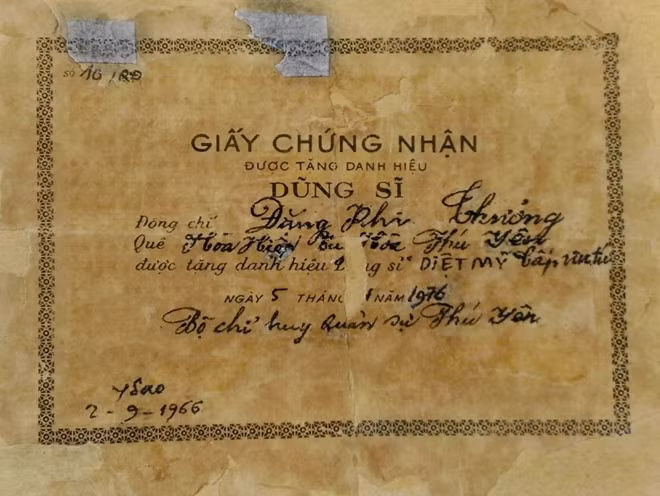 Số 16/QĐ
GIẤY CHỨNG NHẬN
ĐƯỢC TẶNG DANH HIỆU
DŨNG SĨ
Đồng chí Đặng Phi Thưởng
Quê Hòa Hiệp Hòa Phú Yên
được tặng danh hiệu sĩ DIỆT MỸ Cấp
NGÀY 5 THÁNG NĂM 1976
Bộ chỉ huy Quân sự Phú Yên
Y Sao
2-9-1966